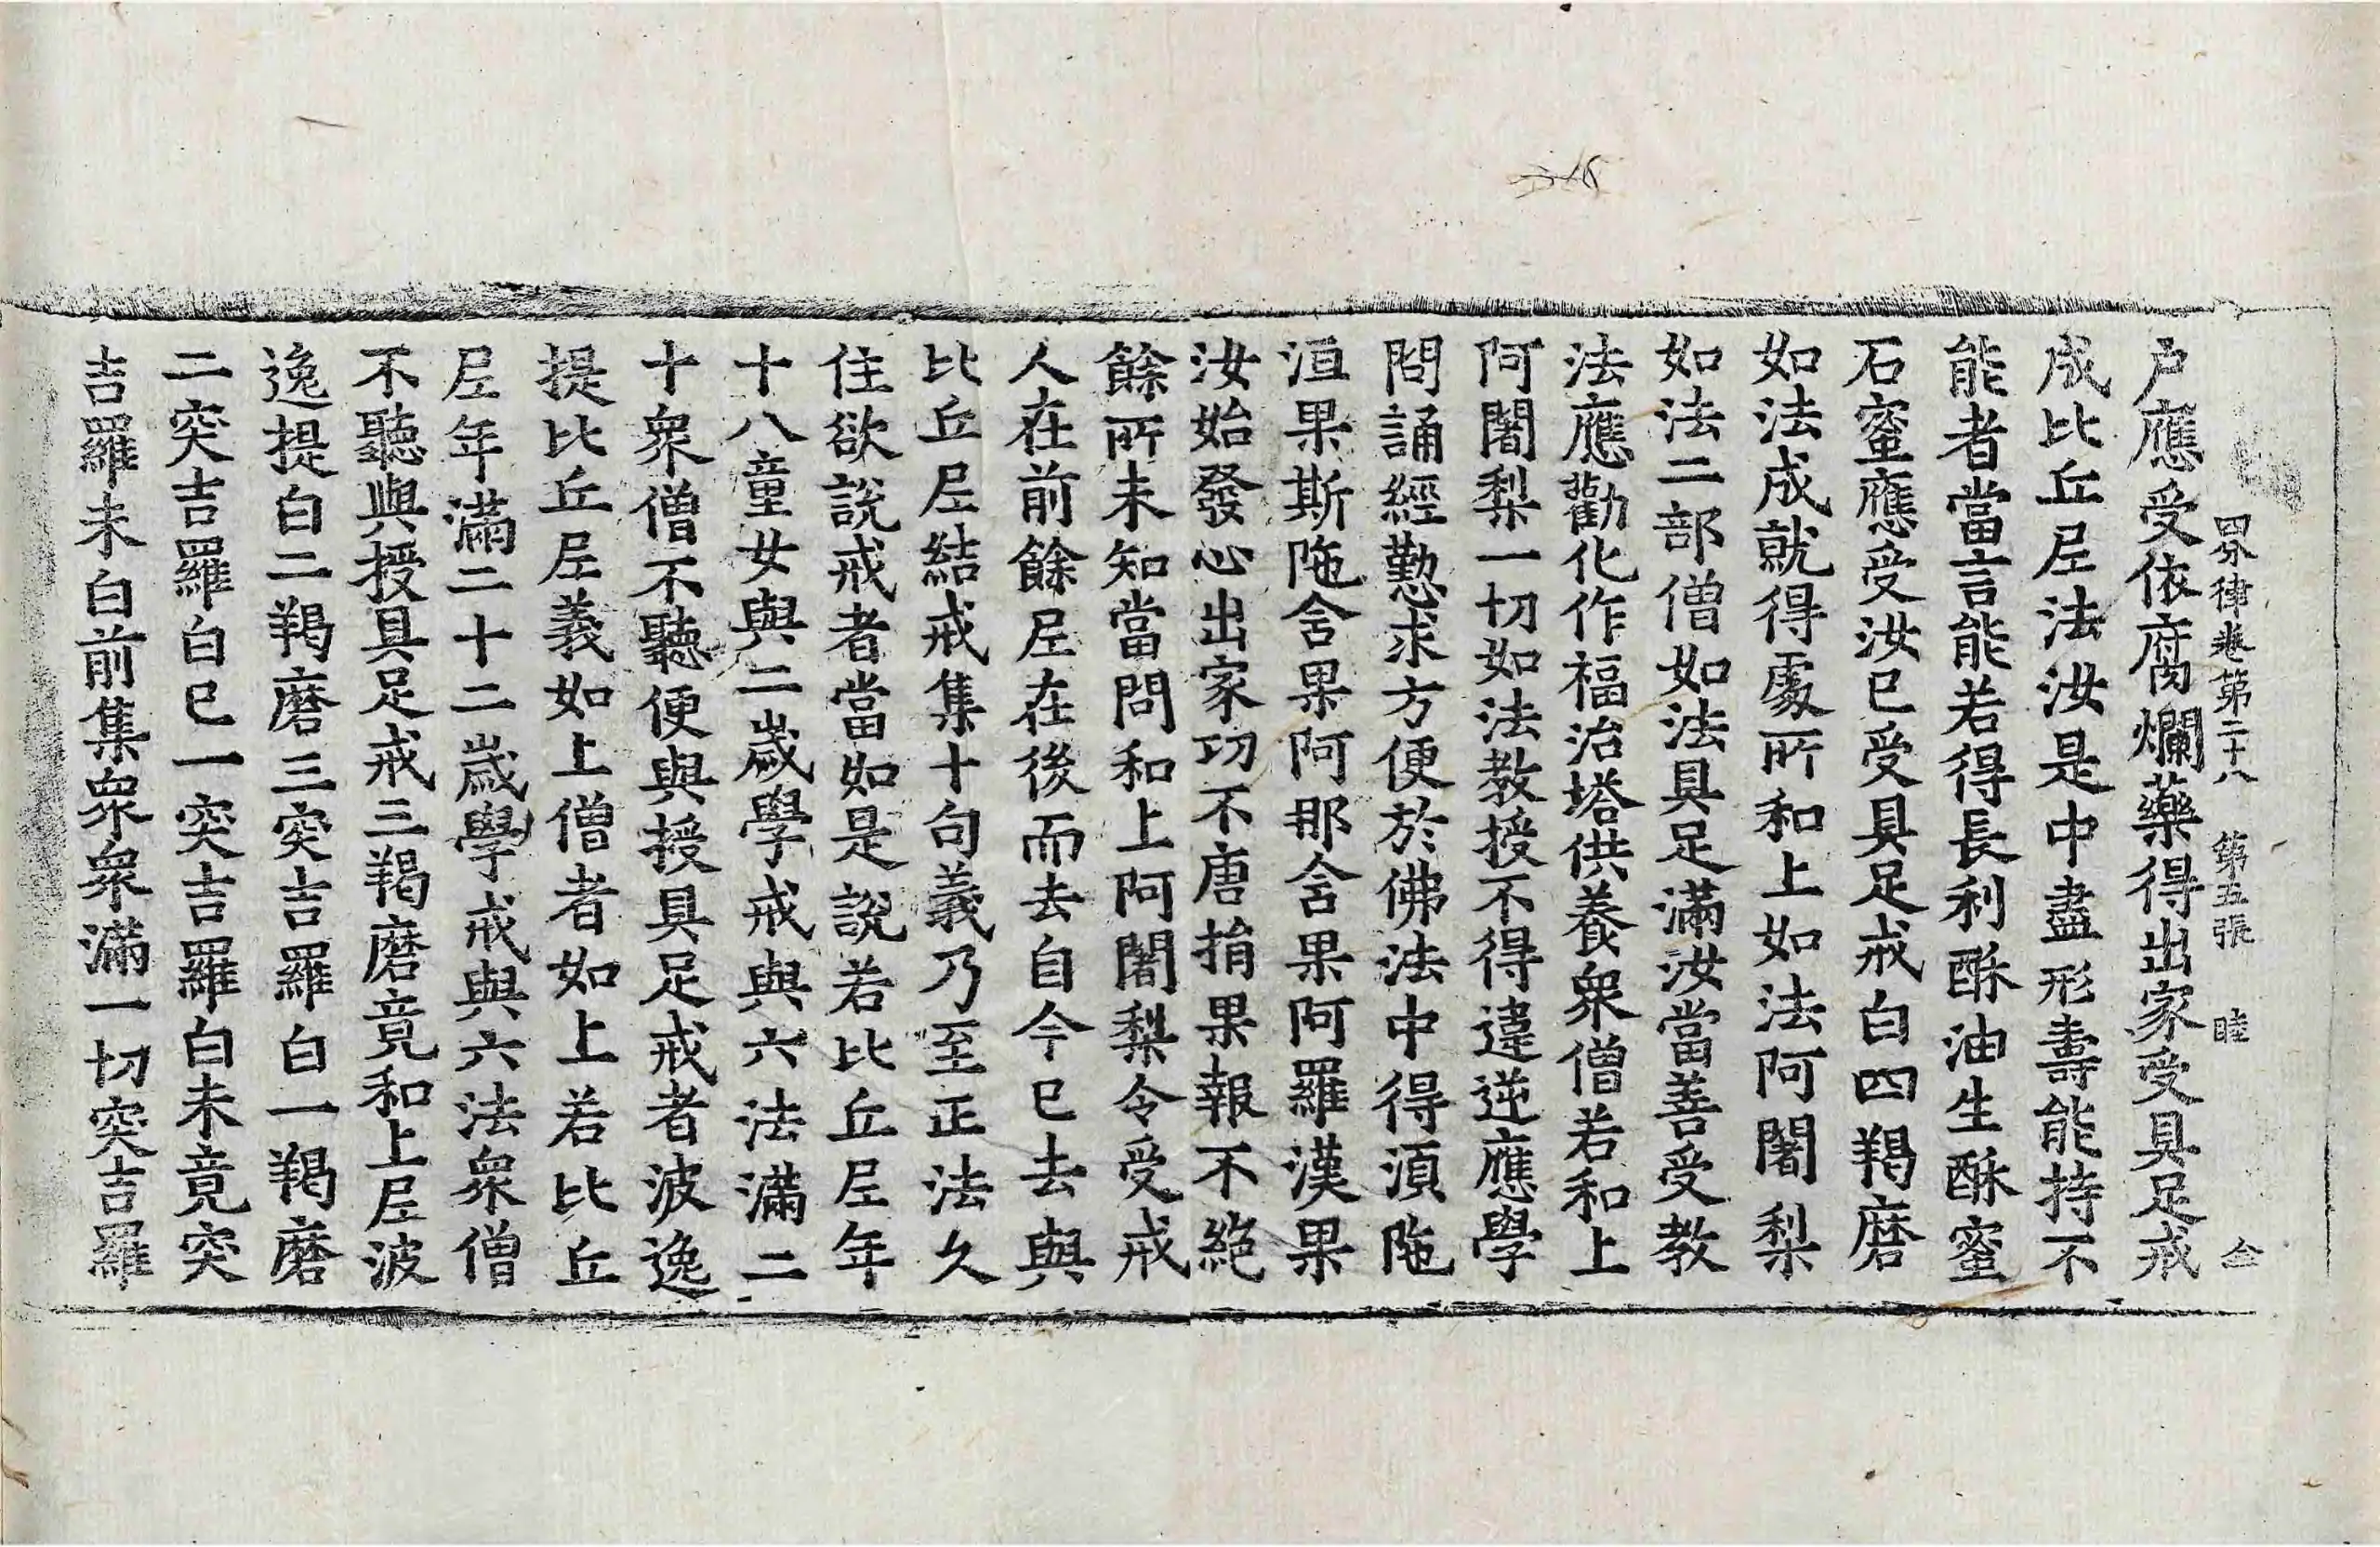 四分律卷第二十八 第五張 睦 仝
户應受依腐爛藥得出家受具足戒
成比丘尼法汝是中盡形壽能持不
能者當言能若得長利酥油生酥蜜
石蜜應受汝已受具足戒白四羯磨
如法成就得處所和上如法阿闍梨
如法二部僧如法具足滿汝當善受教
法應勸化作福治塔供養衆僧若和上
阿闍梨一切如法教授不得違逆應學
問誦經勤求方便於佛法中得湏陁
洹果斯陁含果阿那含果阿羅漢果
汝始發心出家功不唐捐果報不絕
餘所未知當問和上阿闍梨令受戒
人在前餘尼在後而去自今已去與
比丘尼結戒集十句義乃至正法久
住欲說戒者當如是說若比丘尼年
十八童女與二歲學戒與六法滿二
十衆僧不聽便與授具足戒者波逸
提比丘尼義如上僧者如上若比丘
尼年滿二十二歲學戒與六法衆僧
不聽與授具足戒三羯磨竟和上尼波
逸提白二羯磨三突吉羅白一羯磨
二突吉羅白已一突吉羅白未竟突
吉羅未白前集衆衆滿一切突吉羅